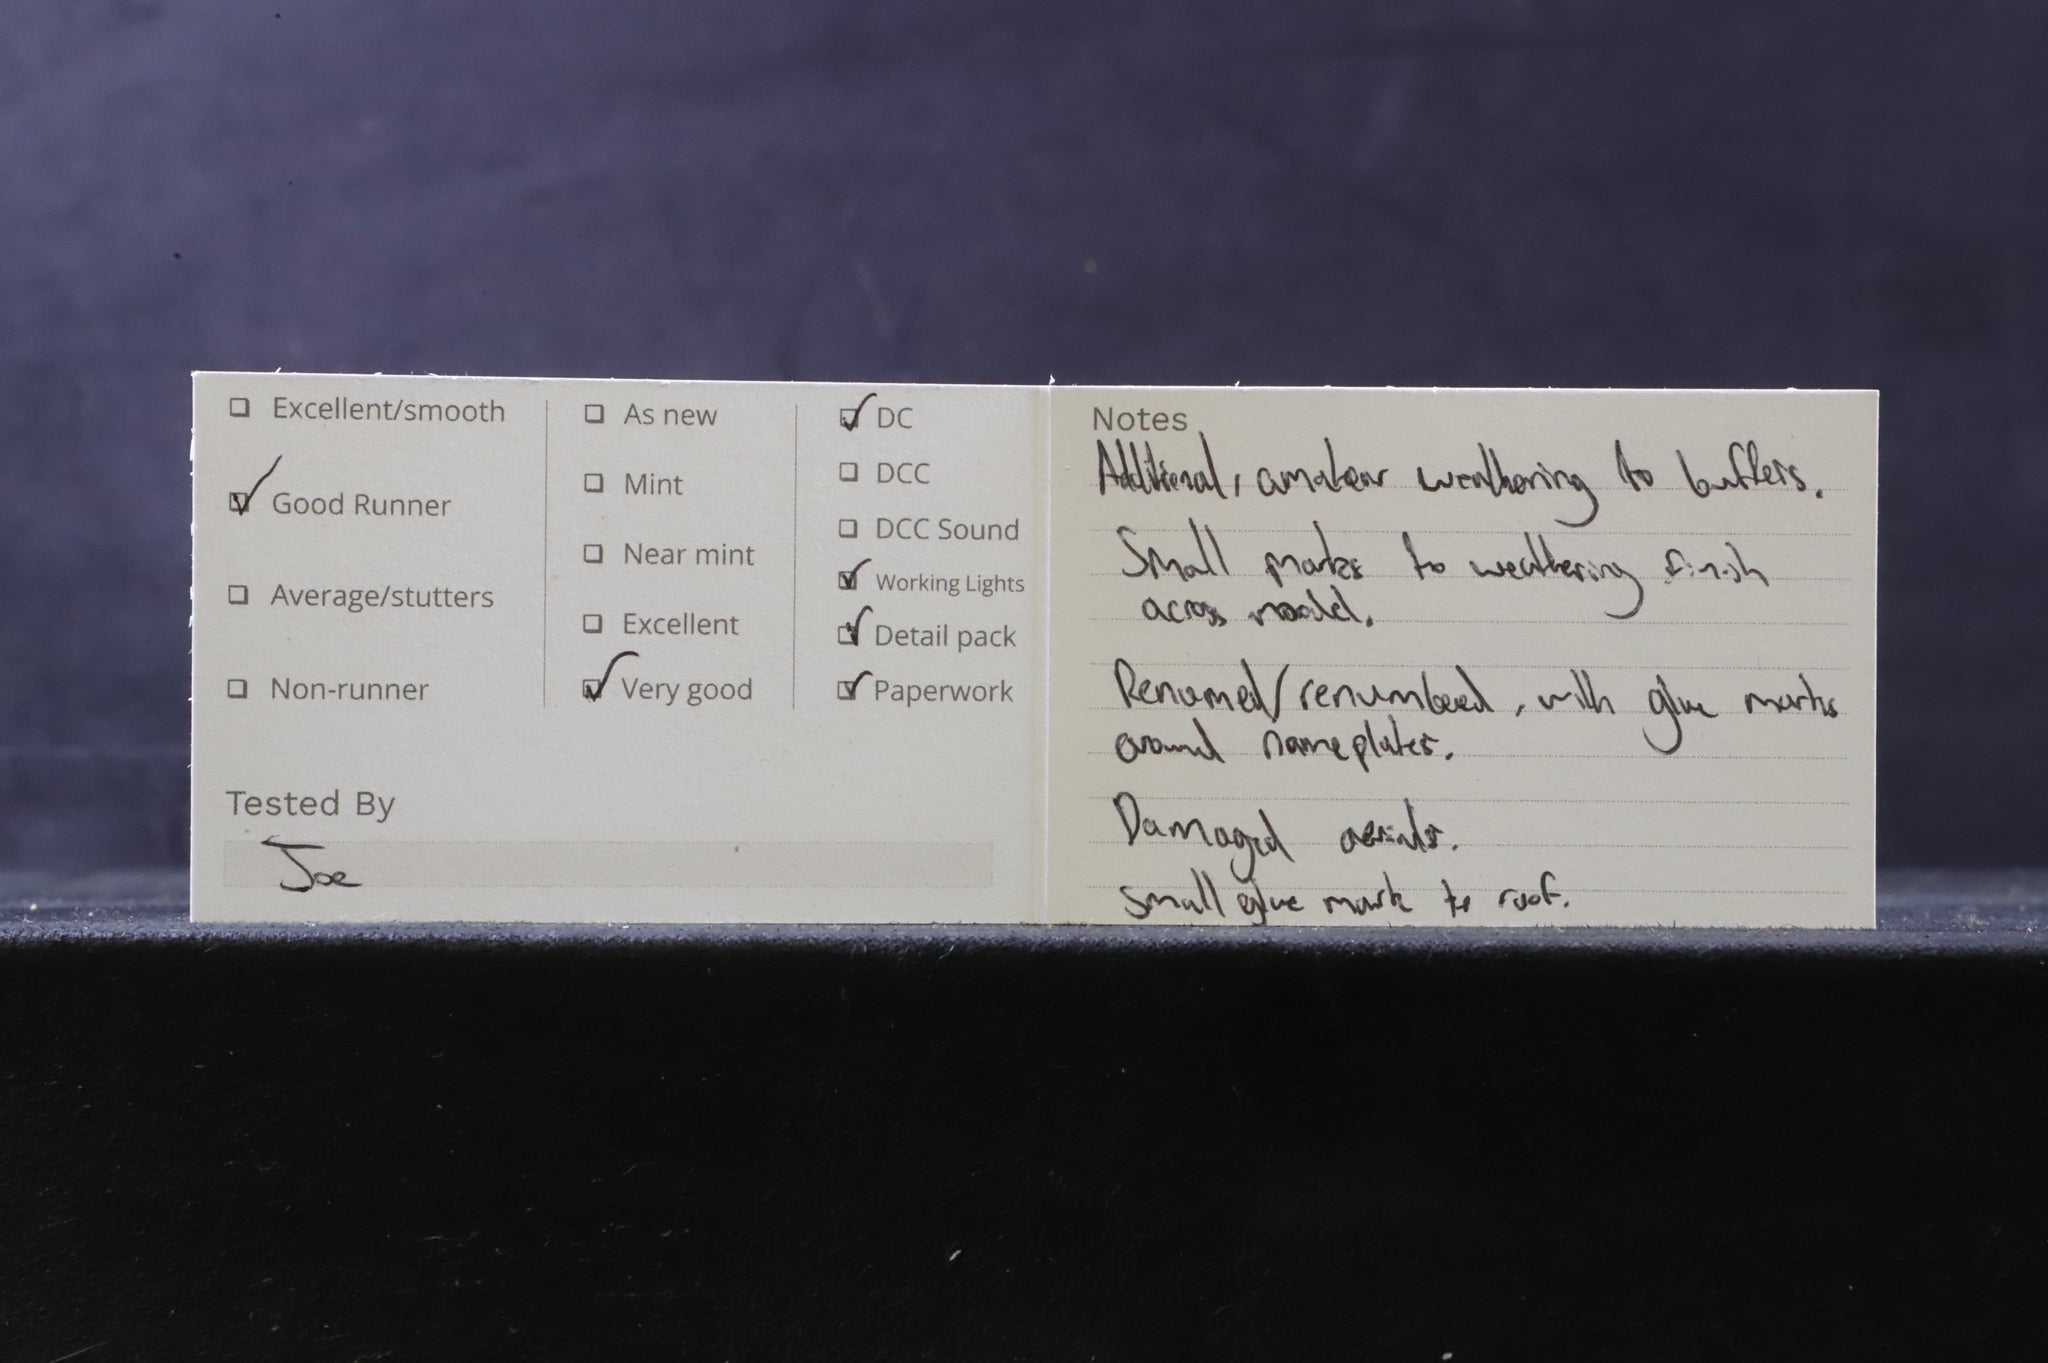 Excellent/smooth
Good Runner
Average/stutters
Non-runner
As new
Mint
Near mint
Excellent
Very good
DC
DCC
DCC Sound
Working Lights
Detail pack
Paperwork
Tested By
Joe
Notes
Additional, amatear weathering to buffers.
Small marks to weathering finish
across model.
Renamed/renumbered, with glue marks
around nameplates.
Damaged aerials.
Small glue mark to roof.